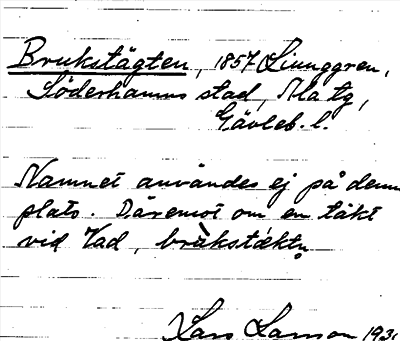 Brukstägten, 1857 Ljunggren,
Söderhamns stad, Ala tg,
Gävleb. l.
Namnet användes ej på denna
plats. Däremot om en täkt
vid Vad, bråkstæktn
Lars Larsson 193